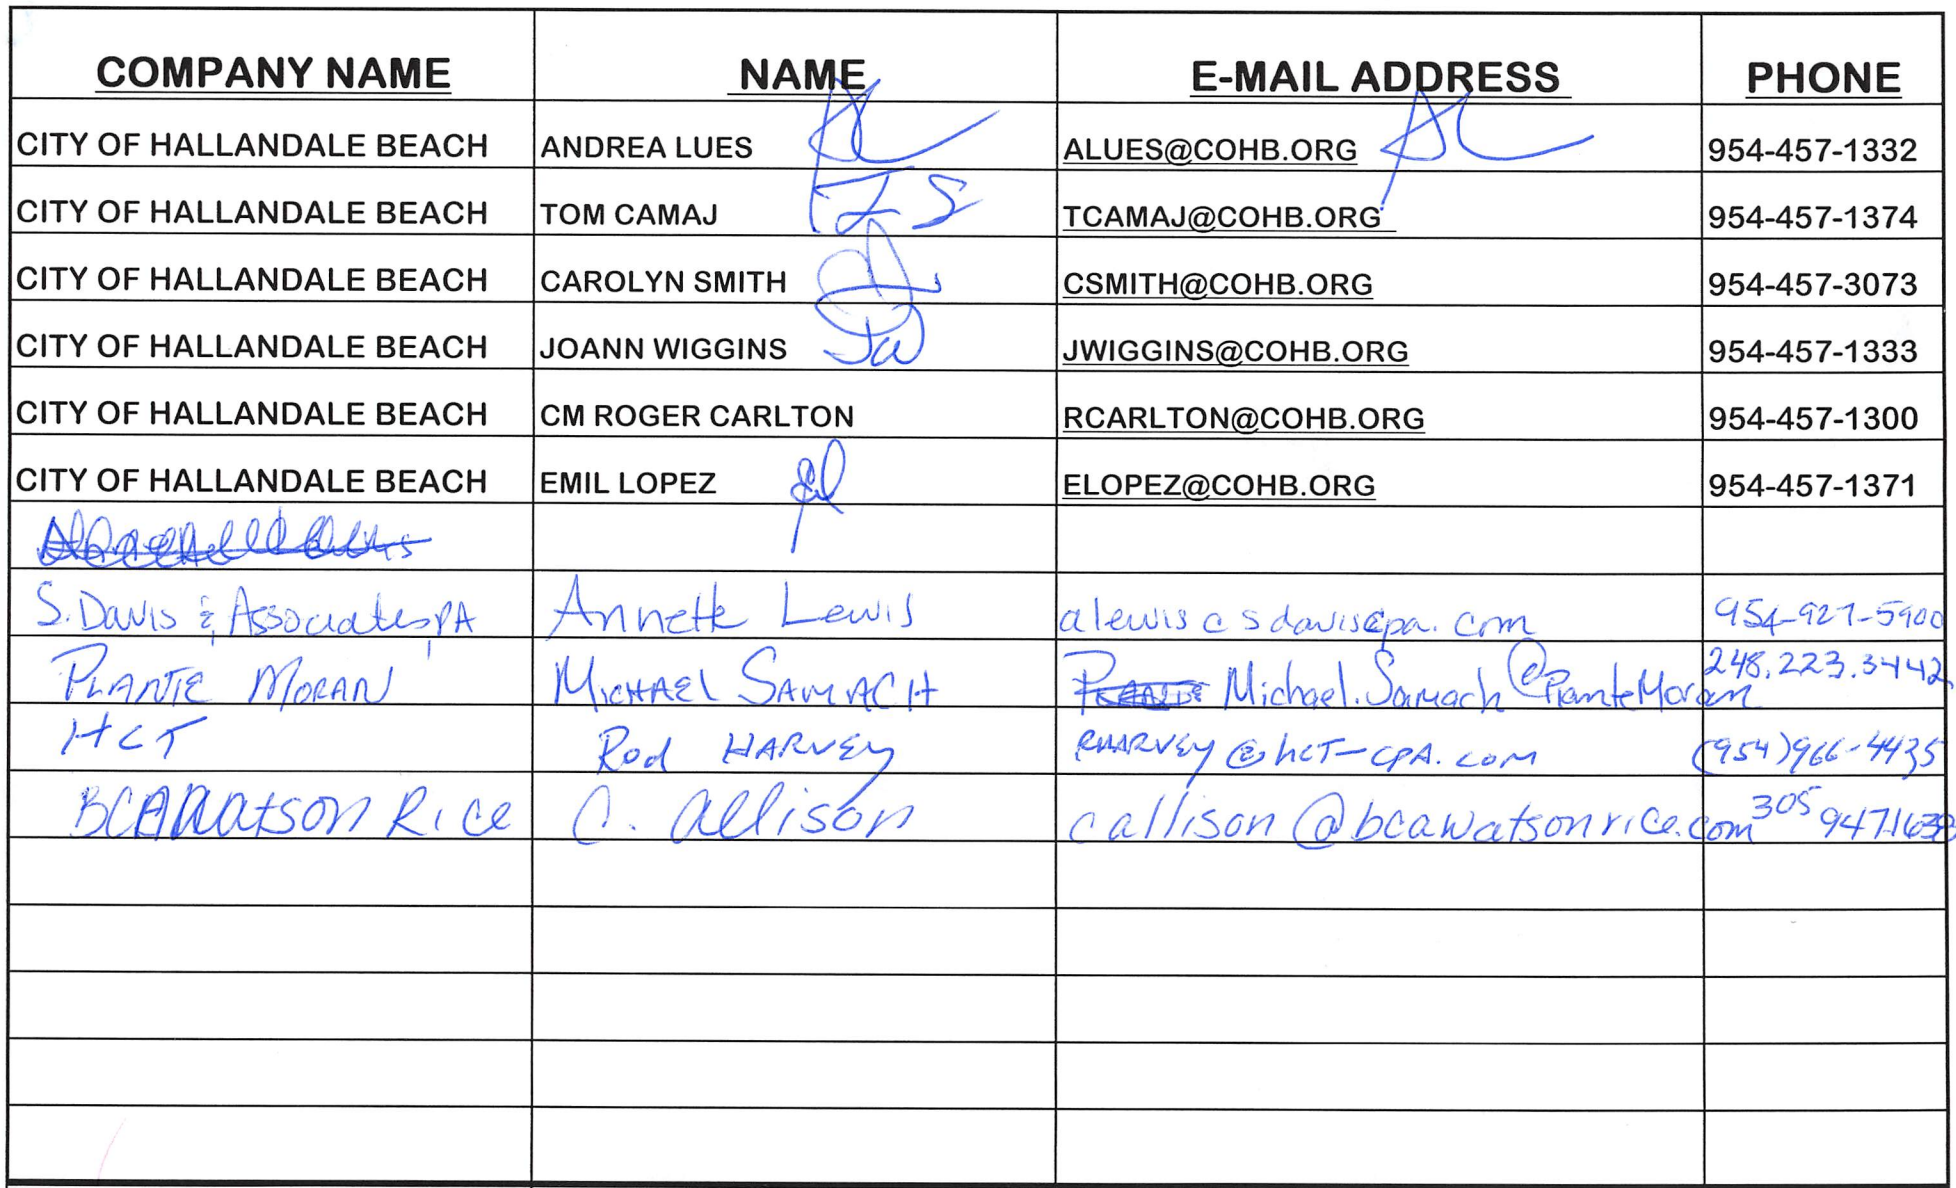 COMPANY NAME NAME E-MAIL ADDRESS PHONE
CITY OF HALLANDALE BEACH ANDREA LUES AL ALUES@COHB.ORG AL 954-457-1332
CITY OF HALLANDALE BEACH TOM CAMAJ TCAMAJ@COHB.ORG 954-457-1374
CITY OF HALLANDALE BEACH CAROLYN SMITH CSMITH@COHB.ORG 954-457-3073
CITY OF HALLANDALE BEACH JOANN WIGGINS JW JWIGGINS@COHB.ORG 954-457-1333
CITY OF HALLANDALE BEACH CM ROGER CARLTON RCARLTON@COHB.ORG 954-457-1300
CITY OF HALLANDALE BEACH EMIL LOPEZ el ELOPEZ@COHB.ORG 954-457-1371
S. Davis & Associates, PA Annette Lewis alewis@sdaviscpa.com 954-927-5900
PLANTE MORAN MICHAEL SAMACH Michael.Samach@PlanteMoran 248.223.3442
HCT Rod HARVEY RHARVEY@hCT-CPA.COM (954)966-4435
BCAWatson Rice C. Allison callison@bcawatsonrice.com 305